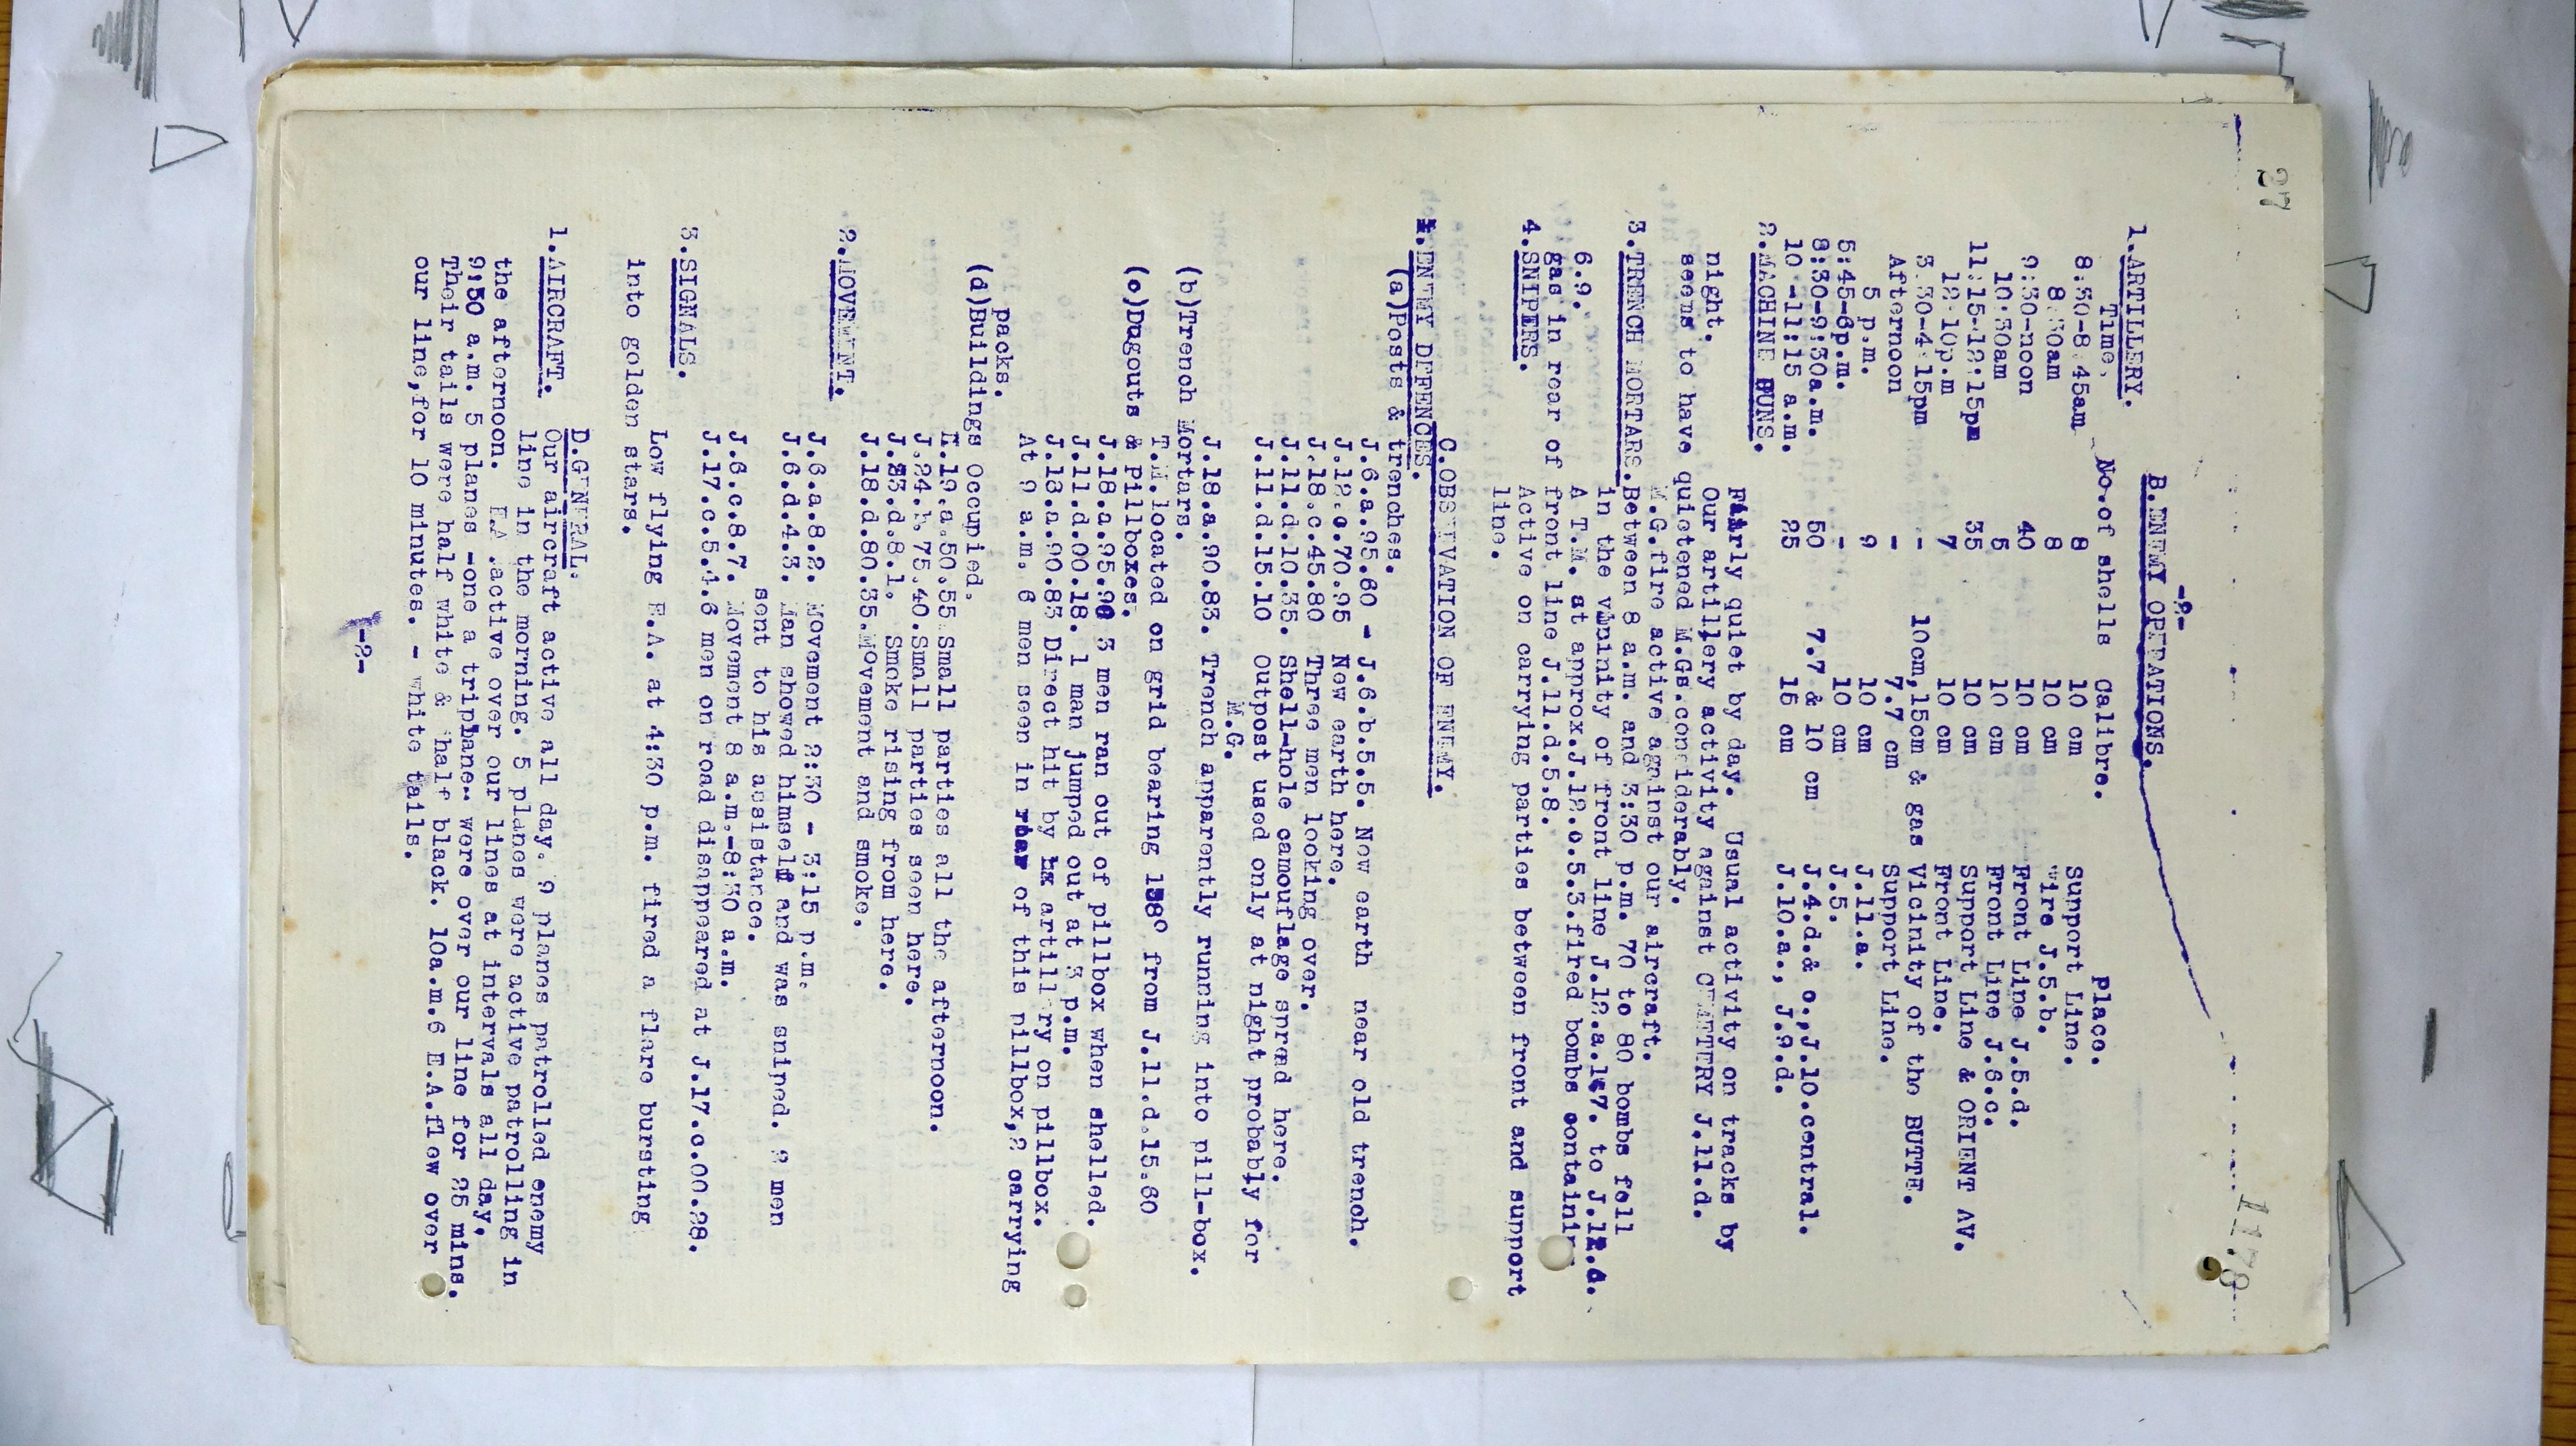 27
1178
-2-
B.ENEMY OPERATIONS.
1.ARTILLERY.
Time. No.of shells Calibre. Place.
8:30-8.45am 8 10 cm Support Line.
8:30am 8 10 cm Wire J.5.b.
9:30-noon 40 10 cm Front Line J.5.d.
10:30am 5 10 cm Front Line J.6.c.
11:15-12:15pm 35 10 cm Support Line & ORIENT AV.
12:10p.m 7 10 cm Front Line.
3.30-4:15pm - 10cm,15cm & gas Vicinity of the BUTTE.
Afternoon - 7.7 cm Support Line.
5 p.m. 9 10 cm J.11.a.
5:45-6p.m. - 10 cm J.5.
8:30-9:30a.m. 50 7.7 & 10 cm J.4.d.& c.,J.10.central.
10 -11:15 a.m. 25 15 cm J.10.a., J.9.d.
2.MACHINE GUNS.
Fairly quiet by day. Usual activity on tracks by
night. Our artillery activity against CEMETERY J.11.d.
seems to have quietened M.Gs.considerably.
M.G.fire active against our aircraft.
3.TRENCH MORTARS.Between 8 a.m. and 3:30 p.m. 70 to 80 bombs fell
in the vicinity of front line J.12.a.1.7. to J.12.d.
6.9. A T.M. at approx.J.12.c.5.3.fired bombs containing
gas in rear of front line J.11.d.5.8.
4.SNIPERS. Active on carrying parties between front and support
line.
C.OBSERVATION OF ENEMY.
1.ENEMY DEFENCES.
(a)Posts & trenches.
J.6.a.95.60 - J.6.b.5.5. New earth near old trench.
J.12.c.70.95 New earth here.
J.18.c.45.80 Three men looking over.
J.11.d.10.35. Shell-hole camouflage spread here.
J.11.d.15.10 Outpost used only at night probably for
M.G.
J.18.a.90.83. Trench apparently running into pill-box.
(b)Trench Mortars.
T.M.located on grid bearing 158° from J.11.d.15.60
(c)Dugouts & Pillboxes.
J.18.a.95.90 3 men ran out of pillbox when shelled.
J.11.d.00.18. 1 man jumped out at 3 p.m.
J.18.a.90.83 Direct hit by artillery on pillbox.
At 9 a.m. 6 men seen in rear of this pillbox,2 carrying
packs.
(d)Buildings Occupied.
K.19.a.50.55 Small parties all the afternoon.
J.24.b.75.40.Small parties seen here.
J.23.d.8.1. Smoke rising from here.
J.18.d.80.35.Movement and smoke.
2.MOVEMENT.
J.6.a.8.2. Movement 2:30 - 3:15 p.m.
J.6.d.4.3. Man showed himself and was sniped. 2 men
sent to his assistance.
J.6.c.8.7. Movement 8 a.m.-8:30 a.m.
J.17.c.5.4.6 men on road disappeared at J.17.c.00.28.
3.SIGNALS.
Low flying E.A. at 4:30 p.m. fired a flare bursting
into golden stars.
D.GENERAL.
1.AIRCRAFT. Our aircraft active all day. 9 planes patrolled enemy
line in the morning. 5 planes were active patrolling in
the afternoon. E.A .active over our lines at intervals all day,
9:50 a.m. 5 planes -one a triplane- were over our line for 25 mins.
Their tails were half white & half black. 10a.m.6 E.A.flew over
our line,for 10 minutes. - white tails.
-2-